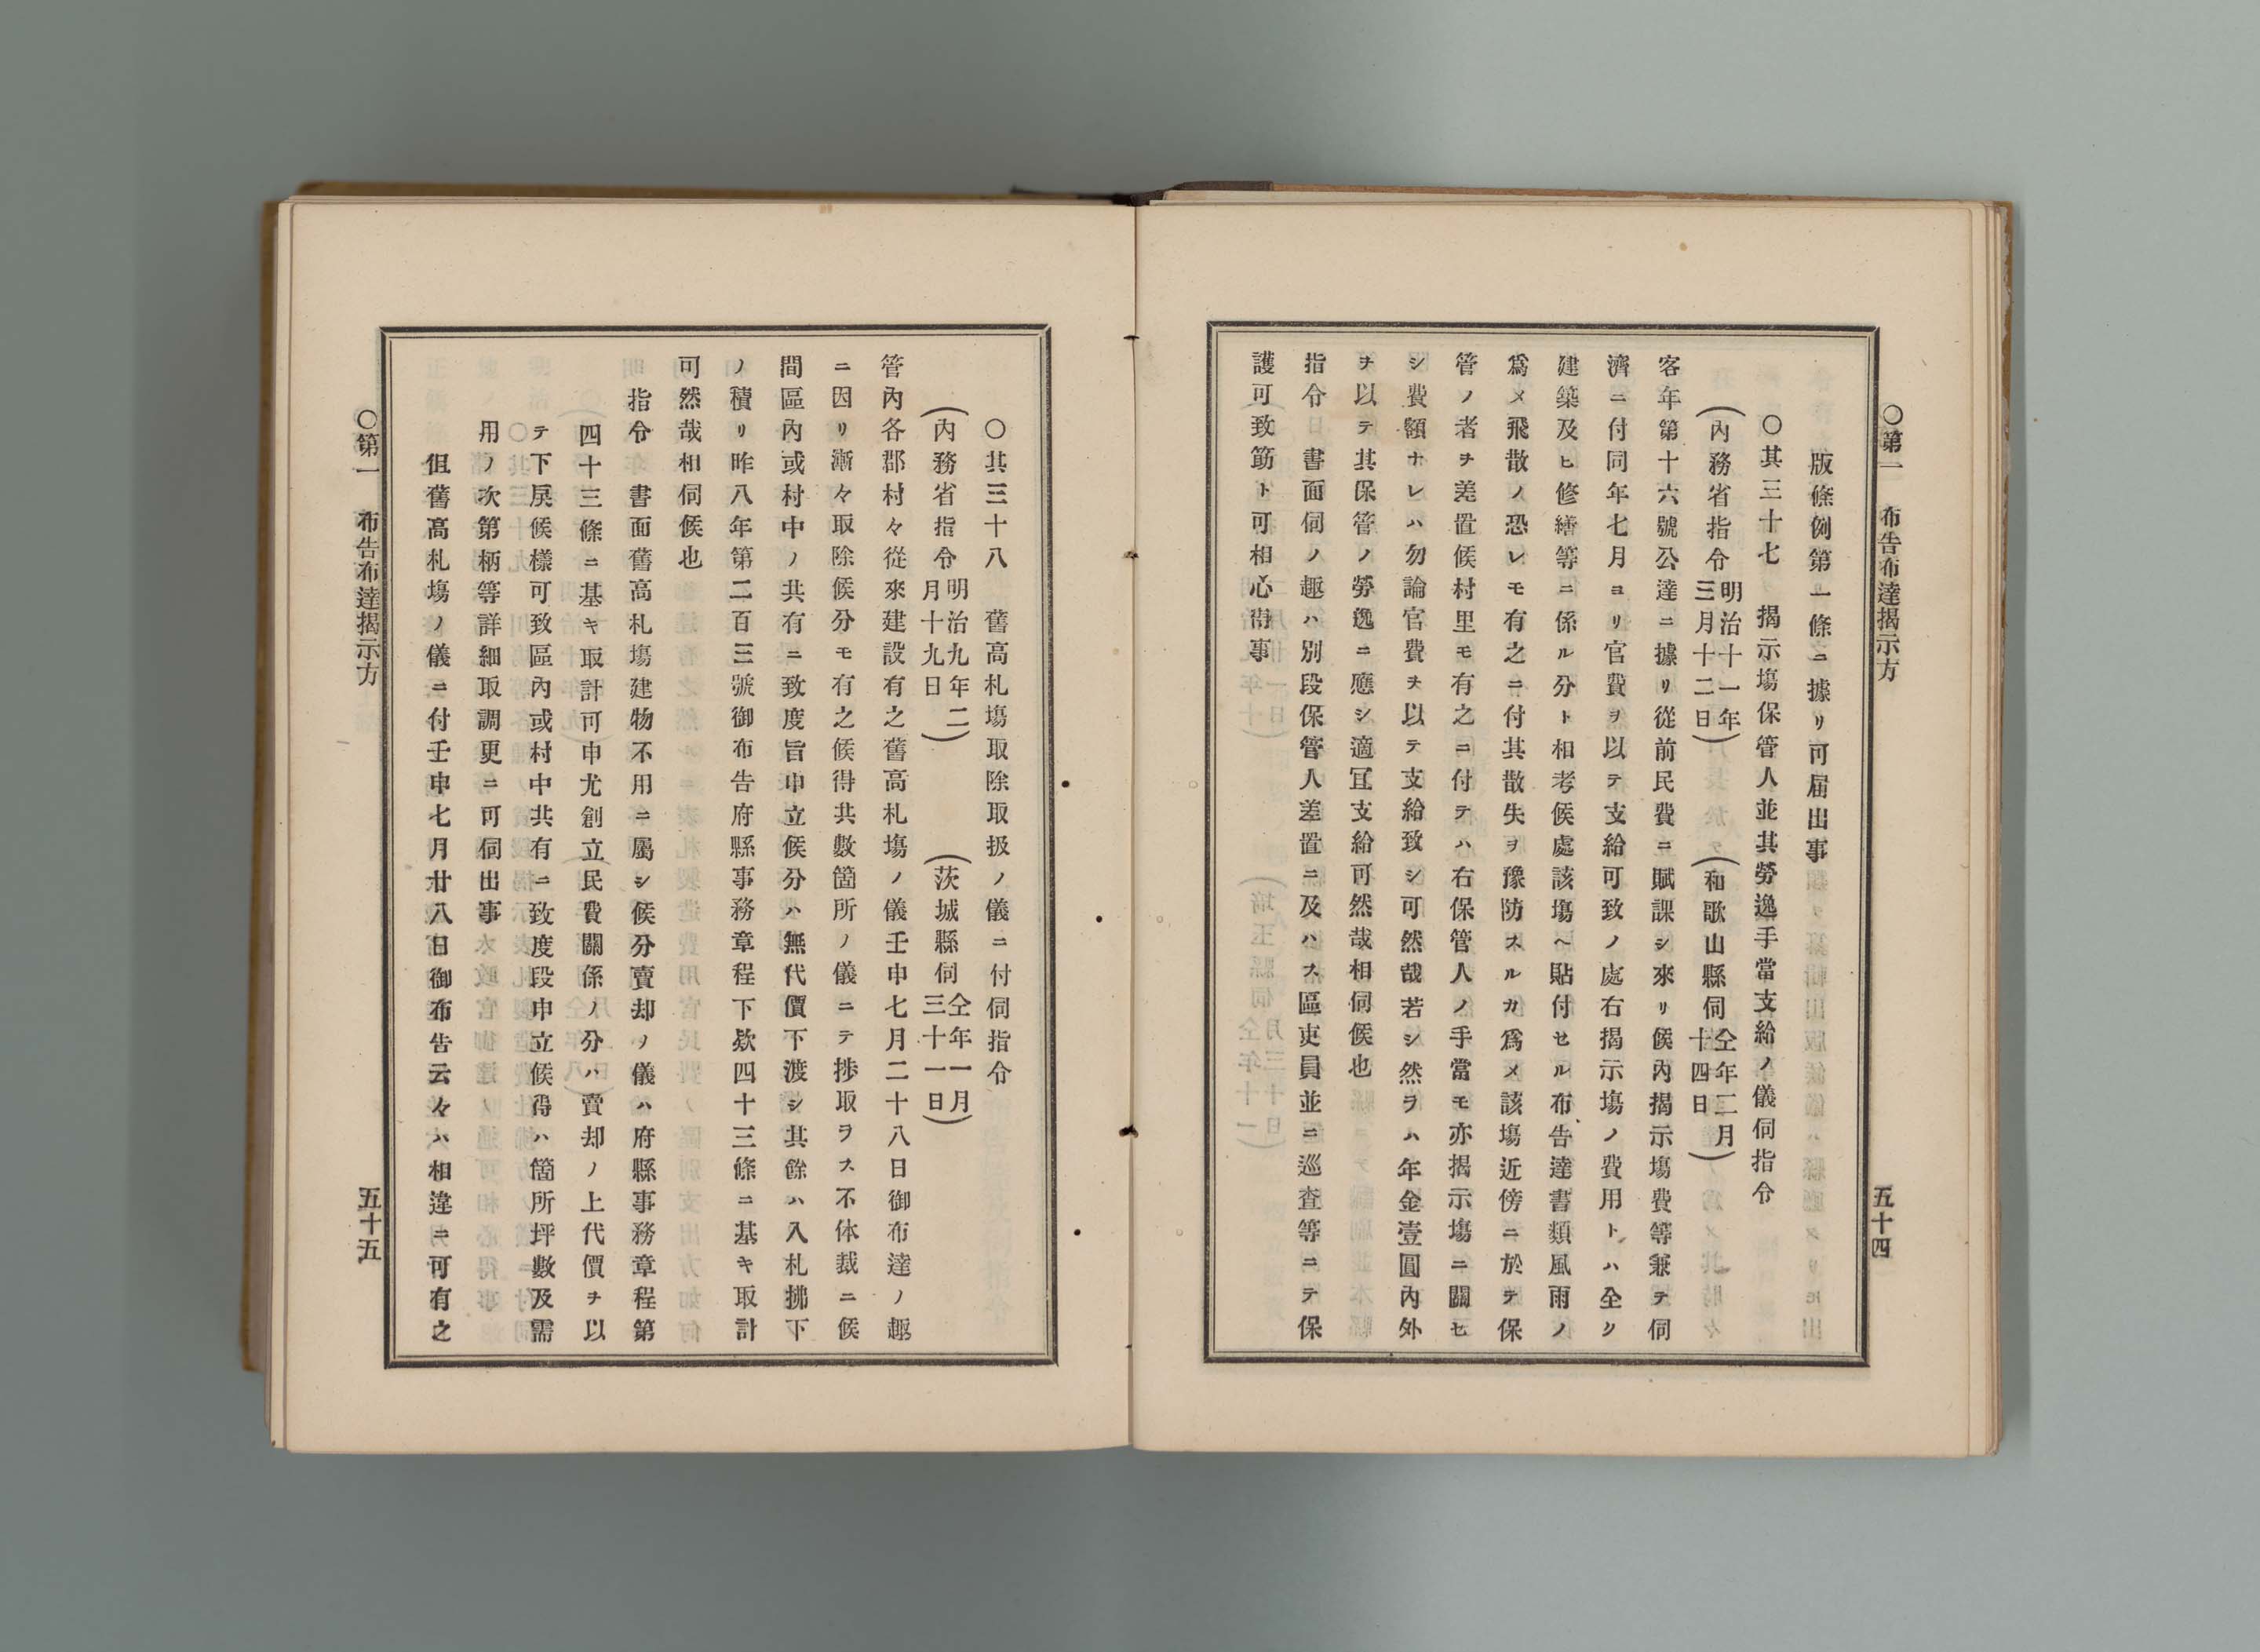 ○第一　布告布達揭示方　五十四
版條例第一條ニ據リ可届出事
○其三十七　揭示塲保管人並其勞逸手當支給ノ儀伺指令
(內務省指令明治十一年三月十二日)　(和歌山縣伺仝年二月十四日)
客年第十六號公達ニ據リ從前民費ニ賦課シ來リ候內揭示塲費等兼テ伺
濟ニ付同年七月ヨリ官費ヲ以テ支給可致ノ處右揭示塲ノ費用トハ全ク
建築及ヒ修繕等ニ係ル分ト相考候處該塲ヘ貼付セル布告達書類風雨ノ
爲メ飛散ノ恐レモ有之ニ付其散失ヲ豫防スルカ爲メ該塲近傍ニ於テ保
管ノ者ヲ差置候村里モ有之ニ付テハ右保管人ノ手當モ亦揭示塲ニ關セ
シ費額ナレハ勿論官費ヲ以テ支給致シ可然哉若シ然ラハ年金壹圓內外
ヲ以テ其保管ノ勞逸ニ應シ適宜支給可然哉相伺候也
指令　書面伺ノ趣ハ別段保管人差置ニ及ハス區吏員並ニ巡査等ニテ保
護可致筋ト可相心得事
○其三十八　舊高札塲取除取扱ノ儀ニ付伺指令
(內務省指令明治九年二月十九日)　(茨城縣伺仝年一月三十一日)
管內各郡村々從來建設有之舊高札塲ノ儀壬申七月二十八日御布達ノ趣
ニ因リ漸々取除候分モ有之候得共數箇所ノ儀ニテ捗取ヲス不体裁ニ候
間區內或村中ノ共有ニ致度旨申立候分ハ無代價下渡シ其餘ハ入札拂下
ノ積リ昨八年第二百三號御布告府縣事務章程下欵四十三條ニ基キ取計
可然哉相伺候也
指令　書面舊高札塲建物不用ニ屬シ候分賣却ノ儀ハ府縣事務章程第
四十三條ニ基キ取計可申尤創立民費關係ノ分ハ賣却ノ上代價ヲ以
テ下戾候樣可致區內或村中共有ニ致度段申立候得ハ箇所坪數及需
用ノ次第柄等詳細取調更ニ可伺出事
但舊高札塲ノ儀ニ付壬申七月廿八日御布告云々ハ相違ニ可有之
○第一　布告布達揭示方　五十五